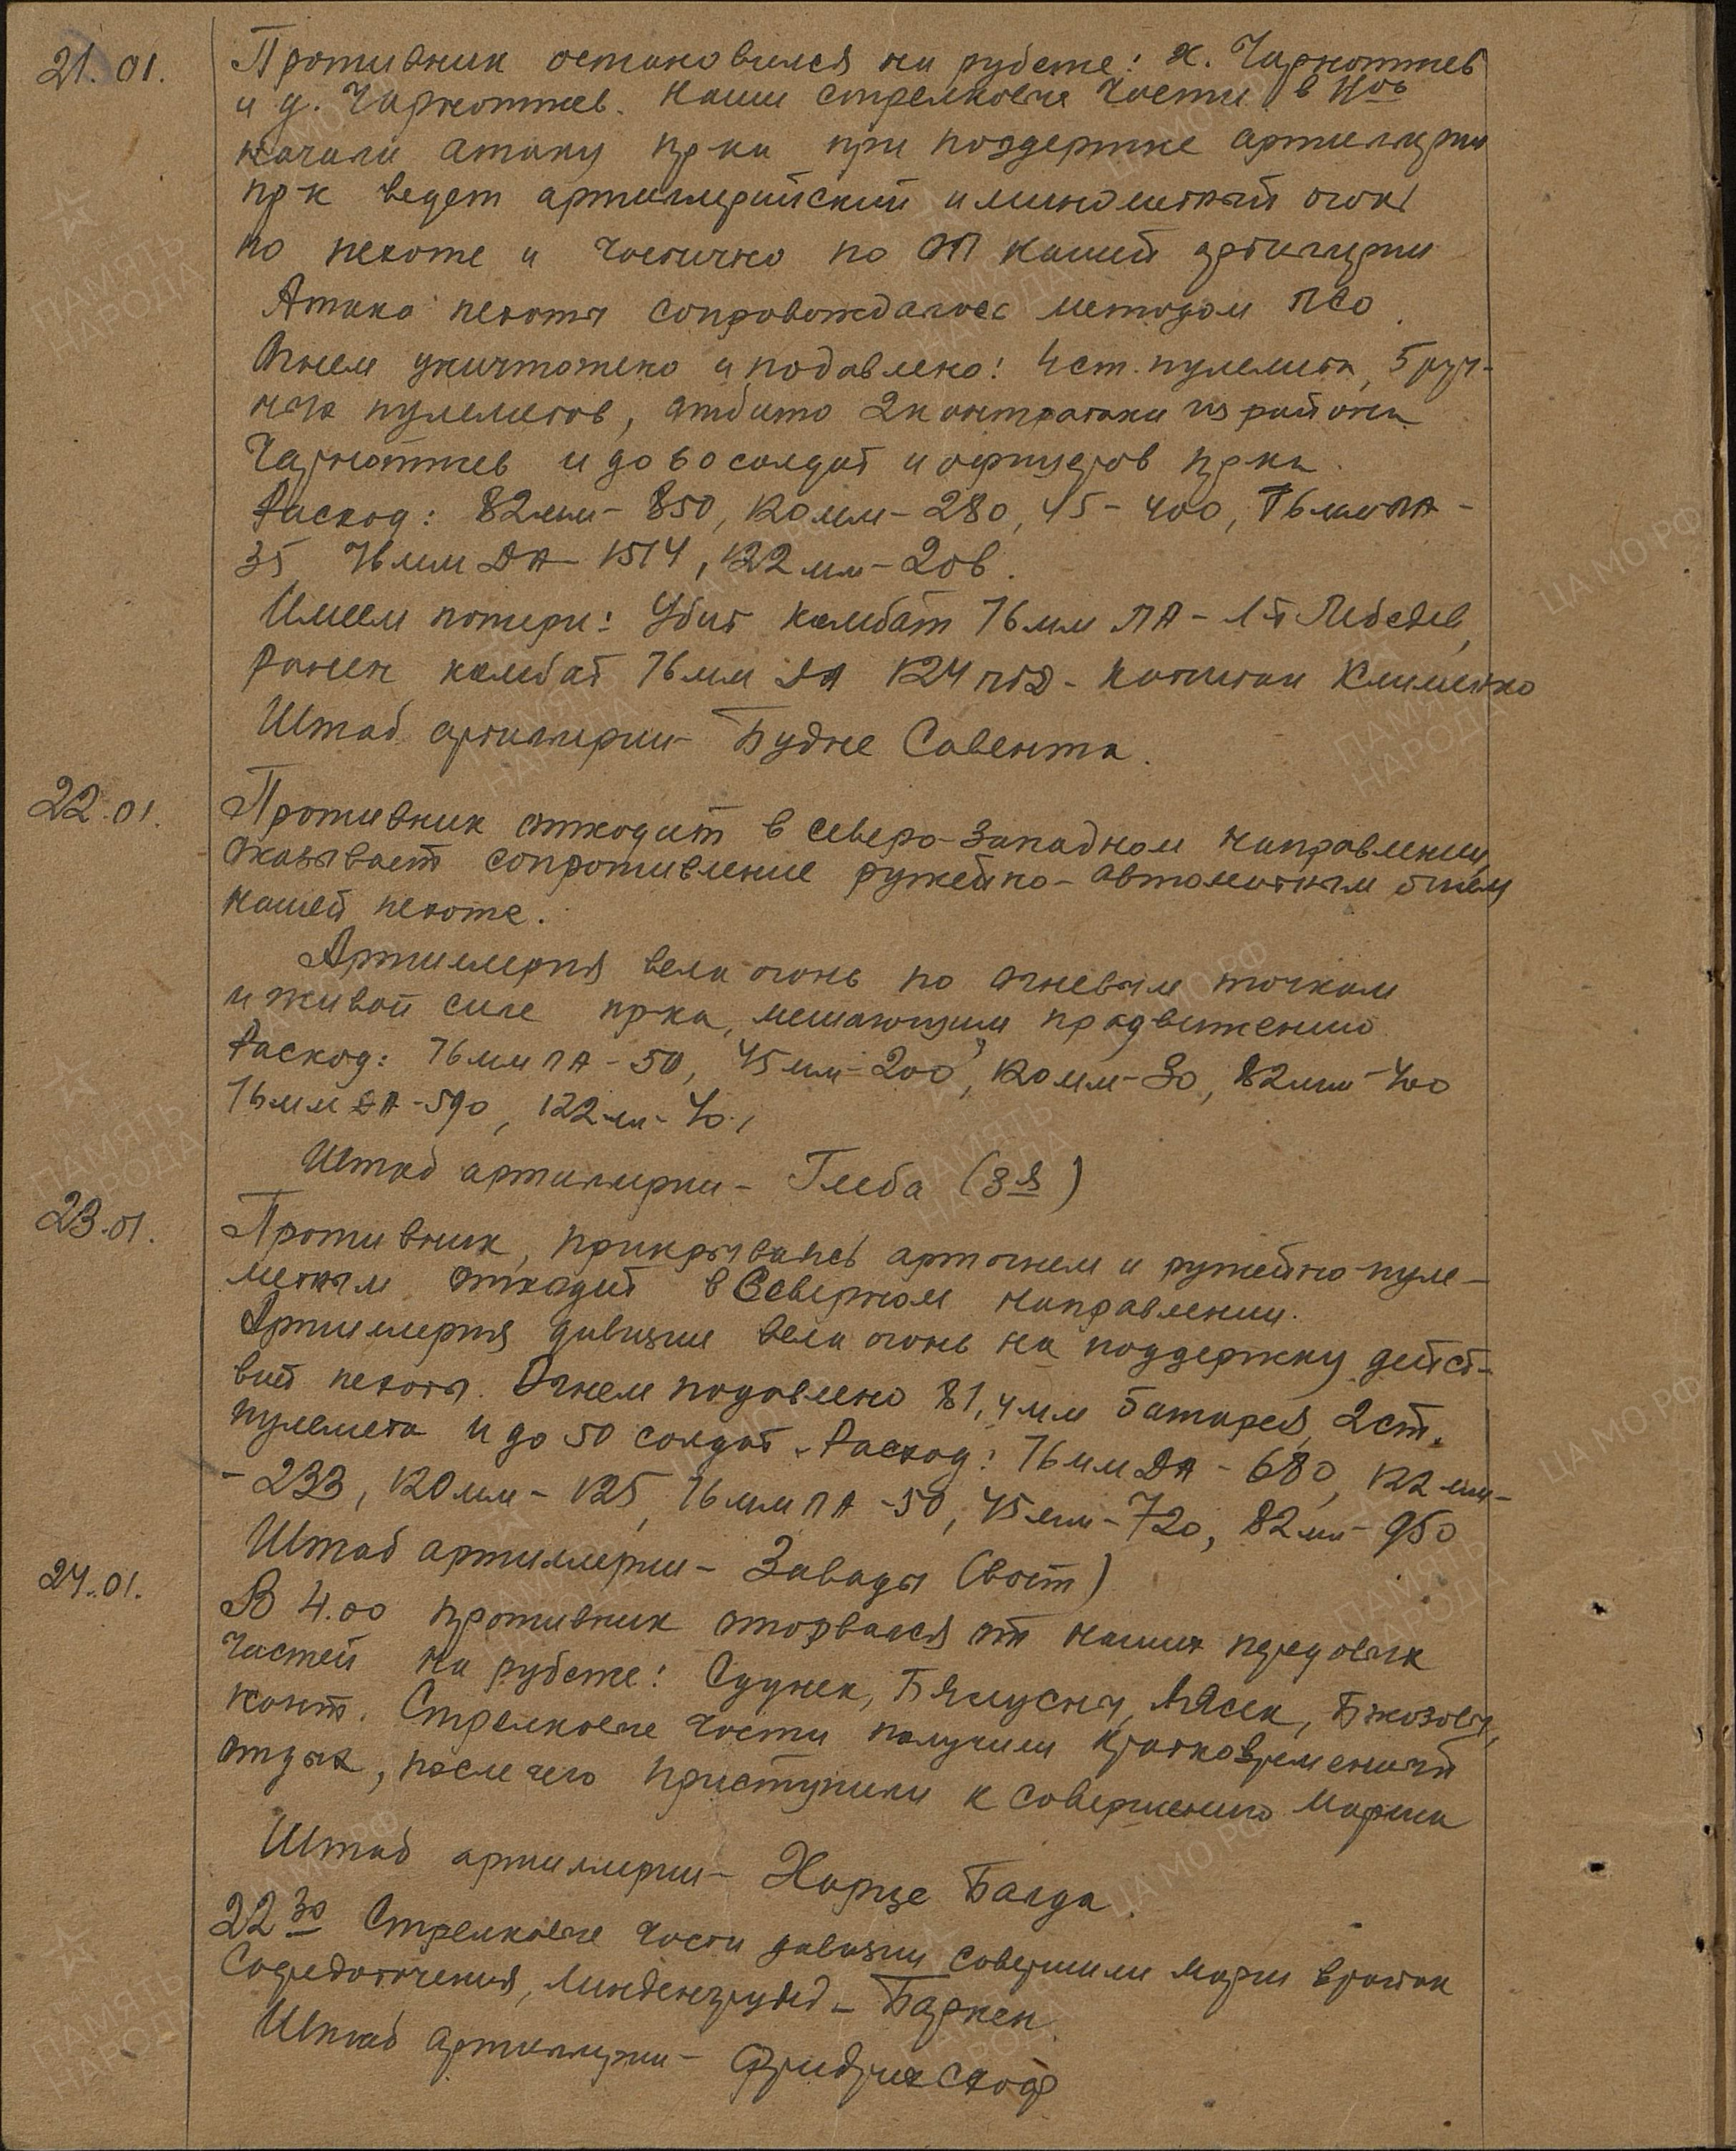 21.01. Противник остановился на рубеже: х. Чарноттев
и д. Чарноттев. Наши стрелковые части в
начали атаку пр-ка при поддержке артиллерии
пр-к ведет артиллерийский и минометный огонь
по пехоте и частично по ОП нашей артиллерии
Атака пехоты сопровождалась методом ПСО.
Огнем уничтожено и подавлено: 4 ст. пулемета, 5 руч-
ных пулеметов, отбито 2 контратаки из района
Чарноттев и до 60 солдат и офицеров пр-ка.
Расход: 82мм - 850, 120мм - 280, 45 - 400, 76мм ПА -
35 76мм ДА - 1514, 122мм - 206.
Имеем потери: Убит комбат 76мм ПА - л-т Лебедев,
ранен комбат 76мм ДА 124 - капитан Клименко
Штаб артиллерии - Будне Совента.
22.01. Противник отходит в северо-западном направлении,
оказывает сопротивление ружейно-автоматным огнем
нашей пехоте.
Артиллерия вела огонь по огневым точкам
и живой силе пр-ка, мешающим продвижению.
Расход: 76мм ПА - 50, 45мм - 200, 120мм - 30, 82мм - 400
76мм ДА - 590, 122мм - 40.
Штаб артиллерии - Глеба (3я)
23.01. Противник, прикрываясь артогнем и ружейно-пуле-
метным отходит в Северном направлении.
Артиллерия дивизии вела огонь на поддержку дейст-
вий пехоты. Огнем подавлено 81,4мм батарея, 2 ст.
пулемета и до 50 солдат. Расход: 76мм ДА - 680, 122мм -
- 233, 120мм - 125, 76мм ПА - 50, 45мм - 720, 82мм - 950
Штаб артиллерии - Завады (вост)
24.01. В 4.00 противник оторвался от наших передовых
частей на рубеже: Суднек, Бялусны, Лясек, Бжозовы,
конт. Стрелковые части получили кратковременный
отдых, после чего приступили к совершению марша
Штаб артиллерии - Харце Балда.
22 30 Стрелковые части дивизии совершили марш в район
Сосредоточения, Линденгрунд - Баркен.
Штаб артиллерии - Фридрихсхоф
ПАМЯТЬ НАРОДА
ЦАМО РФ